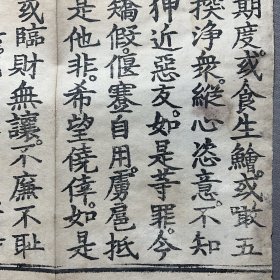 期度。或食生鱠。或噉五
揆淨衆。縱心恣意。不知
狎近惡友。如是等罪。今
矯假。偃蹇自用。属扈抵
是他非。希望僥倖。如是
或臨財無讓。不廉不恥